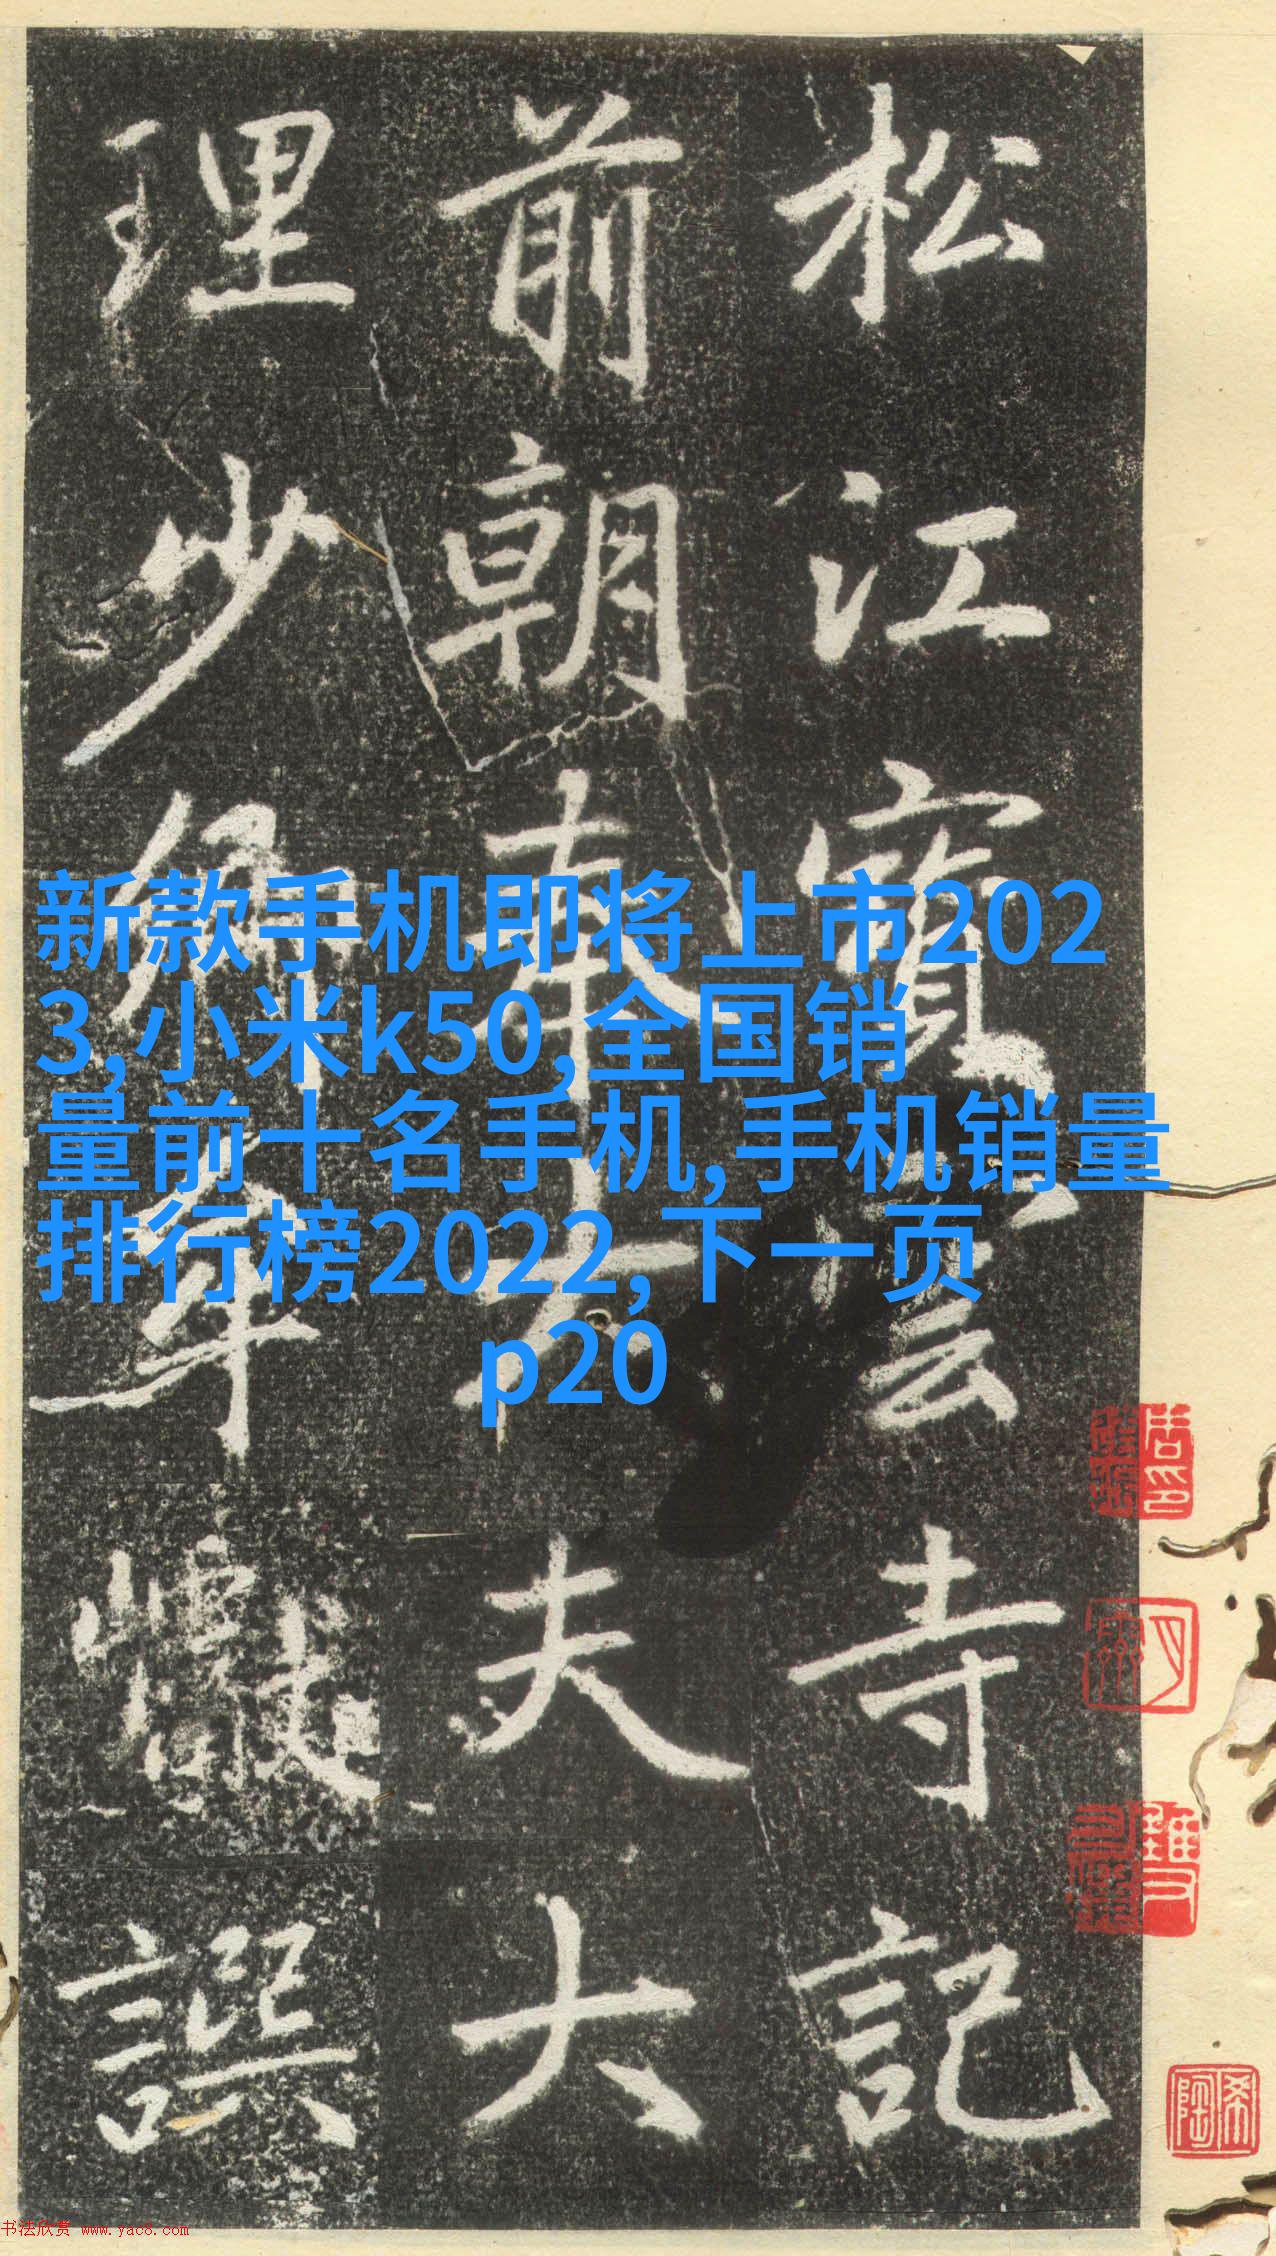 松江寳雲寺記
前朝奉大夫大
理少卿牟巘譔
新款手机即将上市202
3,小米k50,全国销
量前十名手机,手机销量
排行榜2022,下一页
p20
希陶
书法欣赏 www.yac8.com